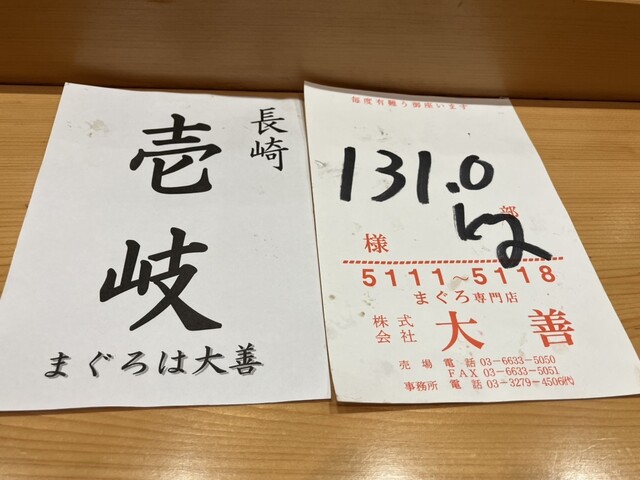 長崎
壱岐
まぐろは大善
毎度有難う御座います
131.0
kg
部
様
5111～5118
まぐろ専門店
株式会社 大善
売場 電話 03-6633-5050
FAX 03-6633-5051
事務所 電話 03-3279-4506㈹